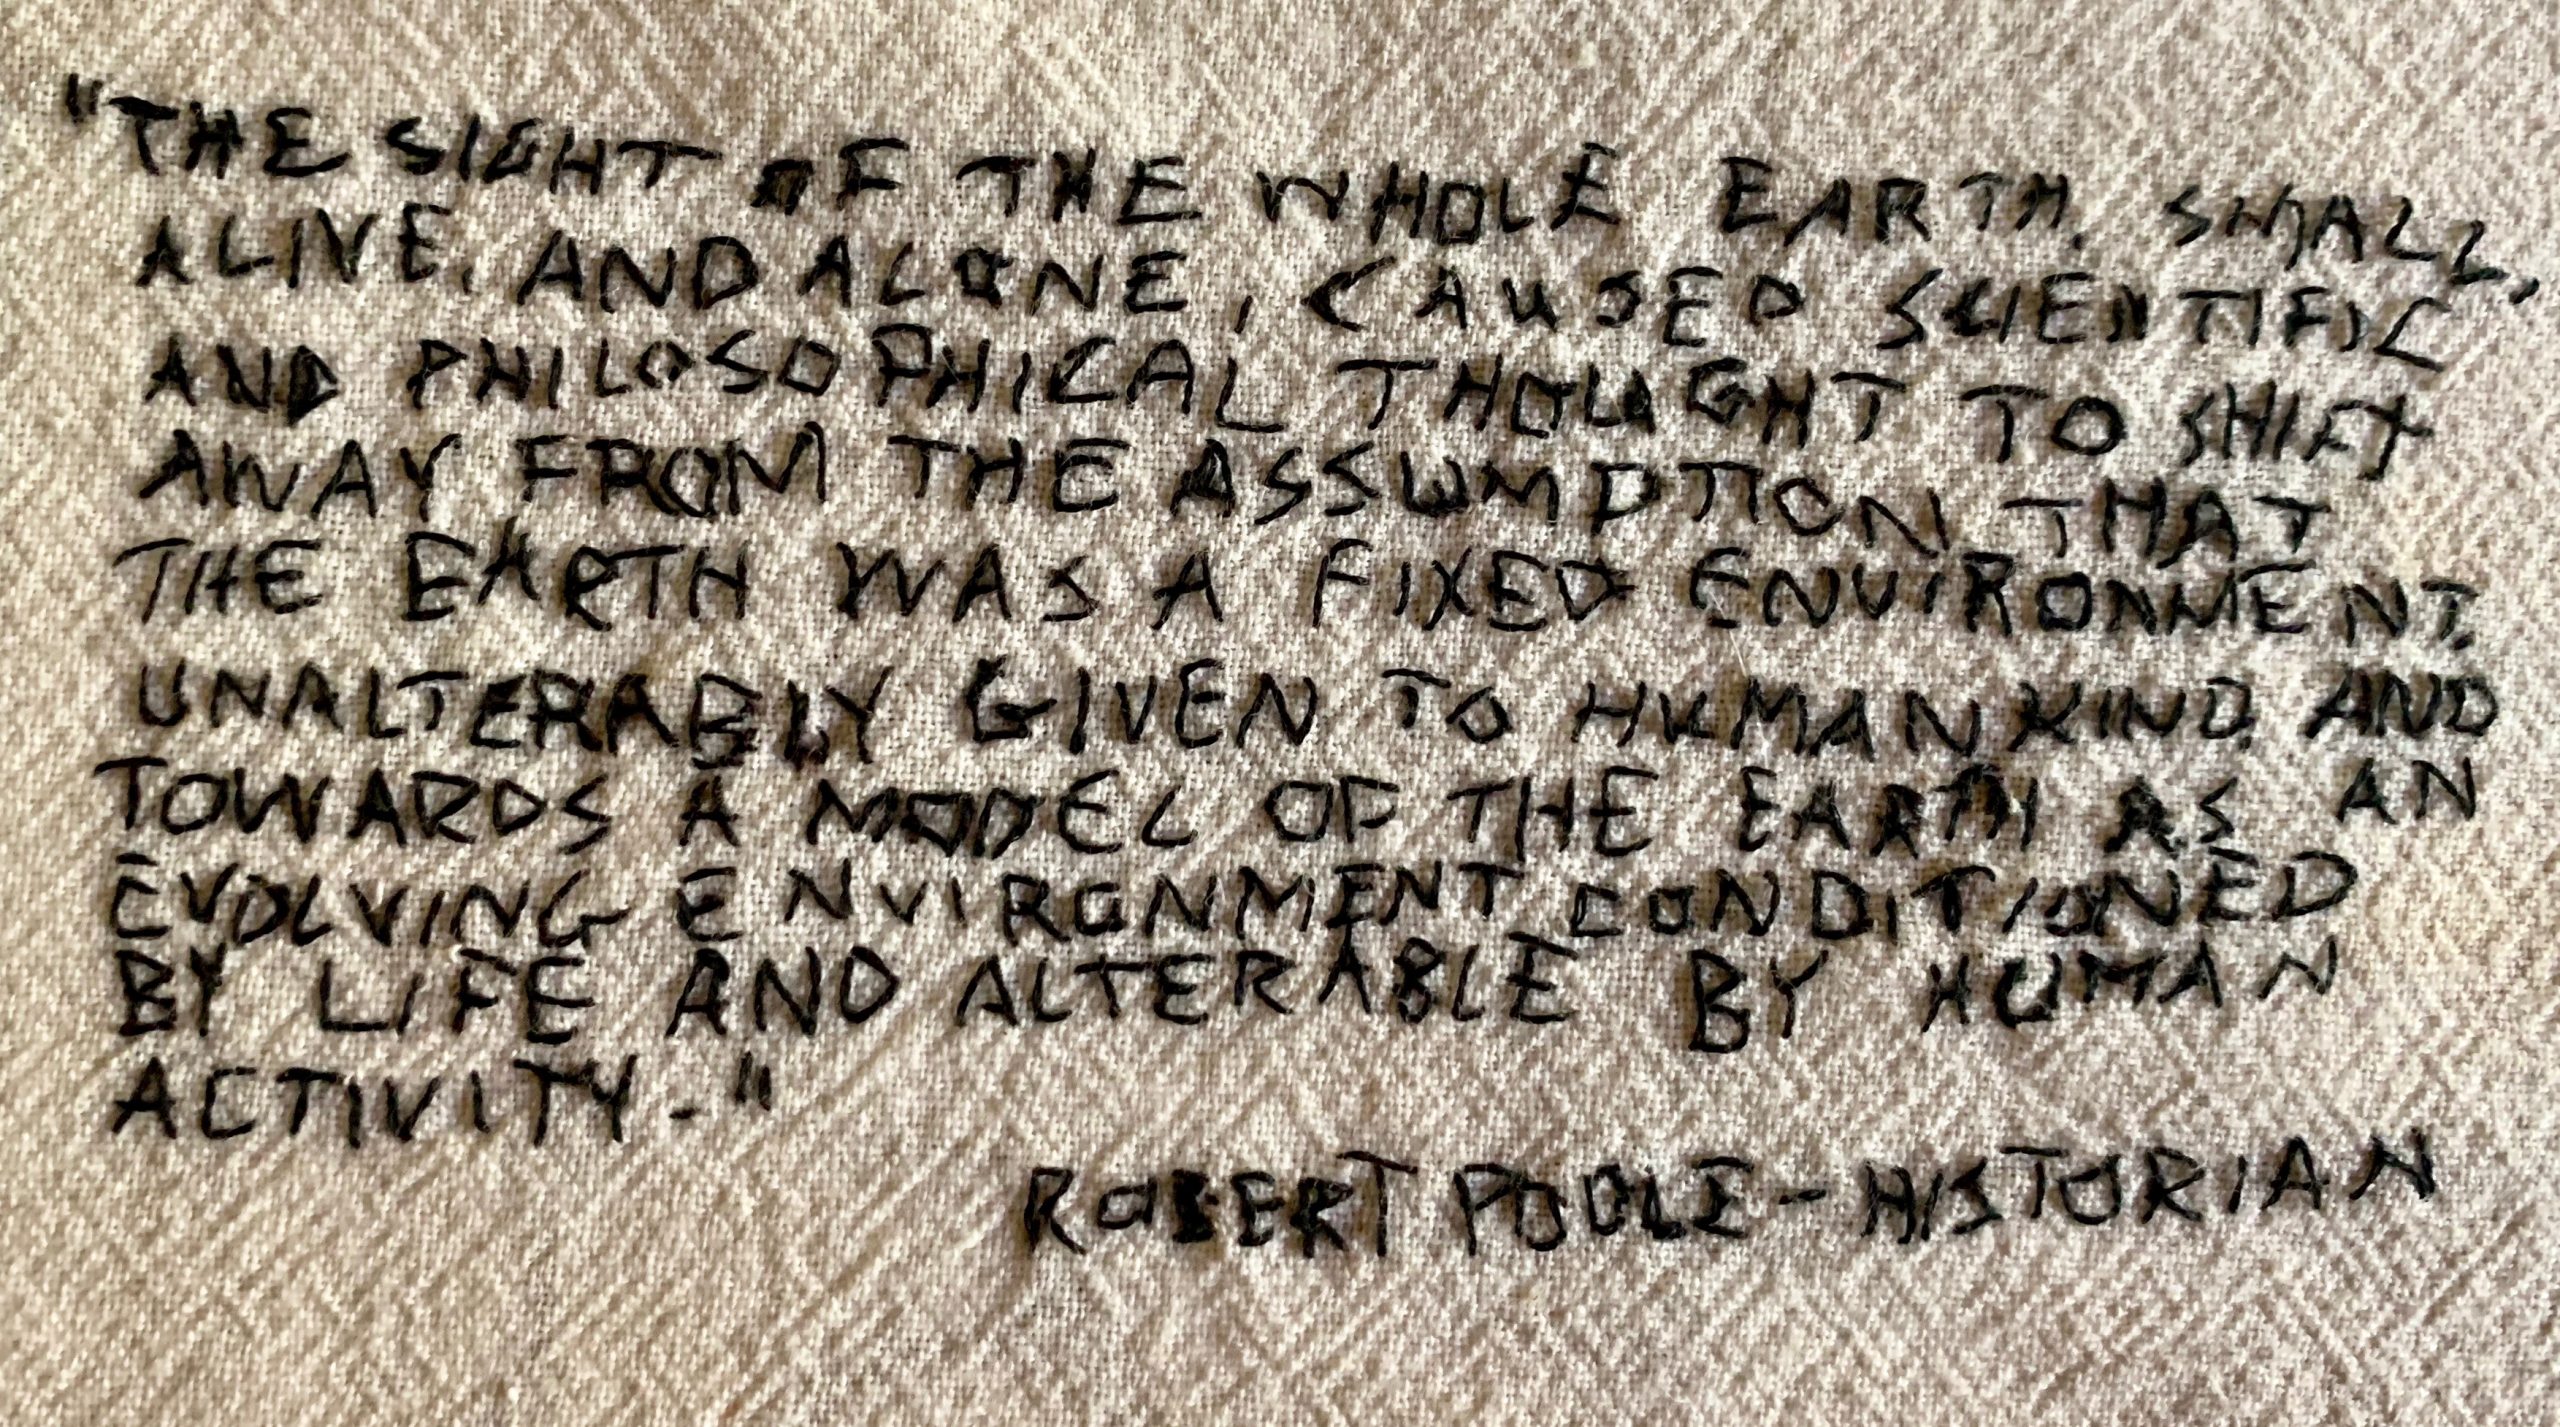 "THE SIGHT OF THE WHOLE EARTH, SMALL,
ALIVE, AND ALONE, CAUSED SCIENTIFIC
AND PHILOSOPHICAL THOUGHT TO SHIFT
AWAY FROM THE ASSUMPTION THAT
THE EARTH WAS A FIXED ENVIRONMENT,
UNALTERABLY GIVEN TO HUMANKIND, AND
TOWARDS A MODEL OF THE EARTH AS AN
EVOLVING ENVIRONMENT CONDITIONED
BY LIFE AND ALTERABLE BY HUMAN
ACTIVITY."
ROBERT POOLE - HISTORIAN